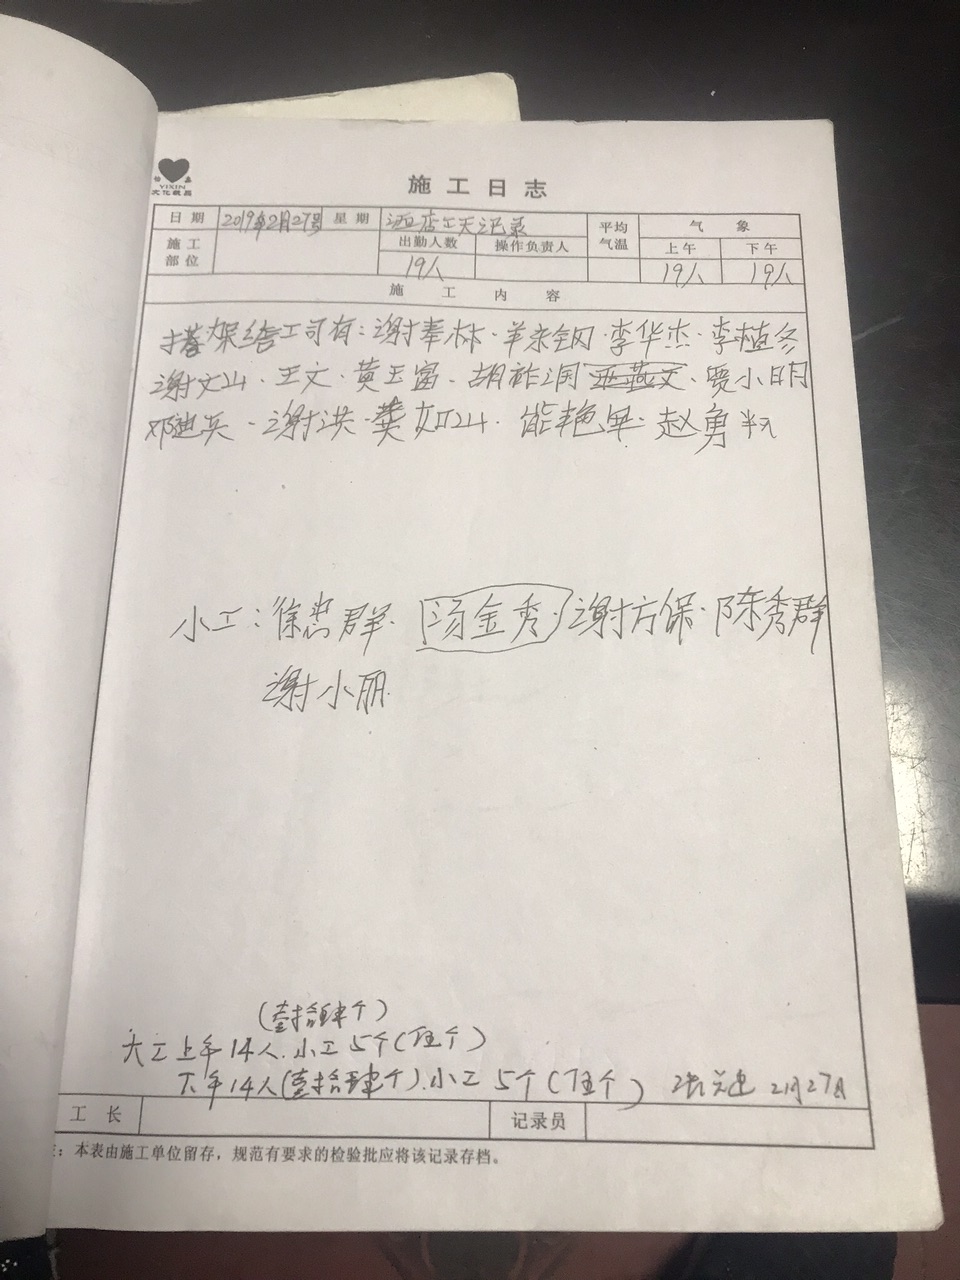 YIXIN
文化家品
施工日志
日期 2019年2月27号 星期 酒店工天记录 平均气温 气象
施工部位 出勤人数 操作负责人 上午 下午
19人 19人 19人
施工内容
搭架缮工司有:谢奉林·羊宗钢·李华杰·李植冬
谢文山·王文·黄玉富·胡祚国 贾小明
邓迪英·谢洪·龚如山·能艳军·赵勇
小工:徐忠群·汤金秀·谢方保·陈秀群
谢小丽
(壹拾肆个)
大工上午14人.小工5个(伍个)
下午14人(壹拾肆个).小工5个(伍个) 2月27日
工长 记录员
注:本表由施工单位留存,规范有要求的检验批应将该记录存档。